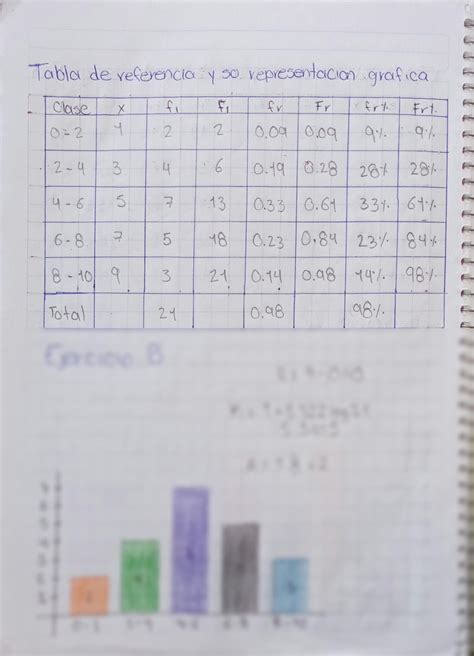 Tabla de referencia y so representacion grafica
Clase x f1 F1 fr Fr fr% Fr%
0-2 1 2 2 0.09 0.09 9% 9%
2-4 3 4 6 0.19 0.28 28% 28%
4-6 5 7 13 0.33 0.61 33% 61%
6-8 7 5 18 0.23 0.84 23% 84%
8-10 9 3 21 0.14 0.98 14% 98%
Total 21 0.98 98%
Ejercicio B